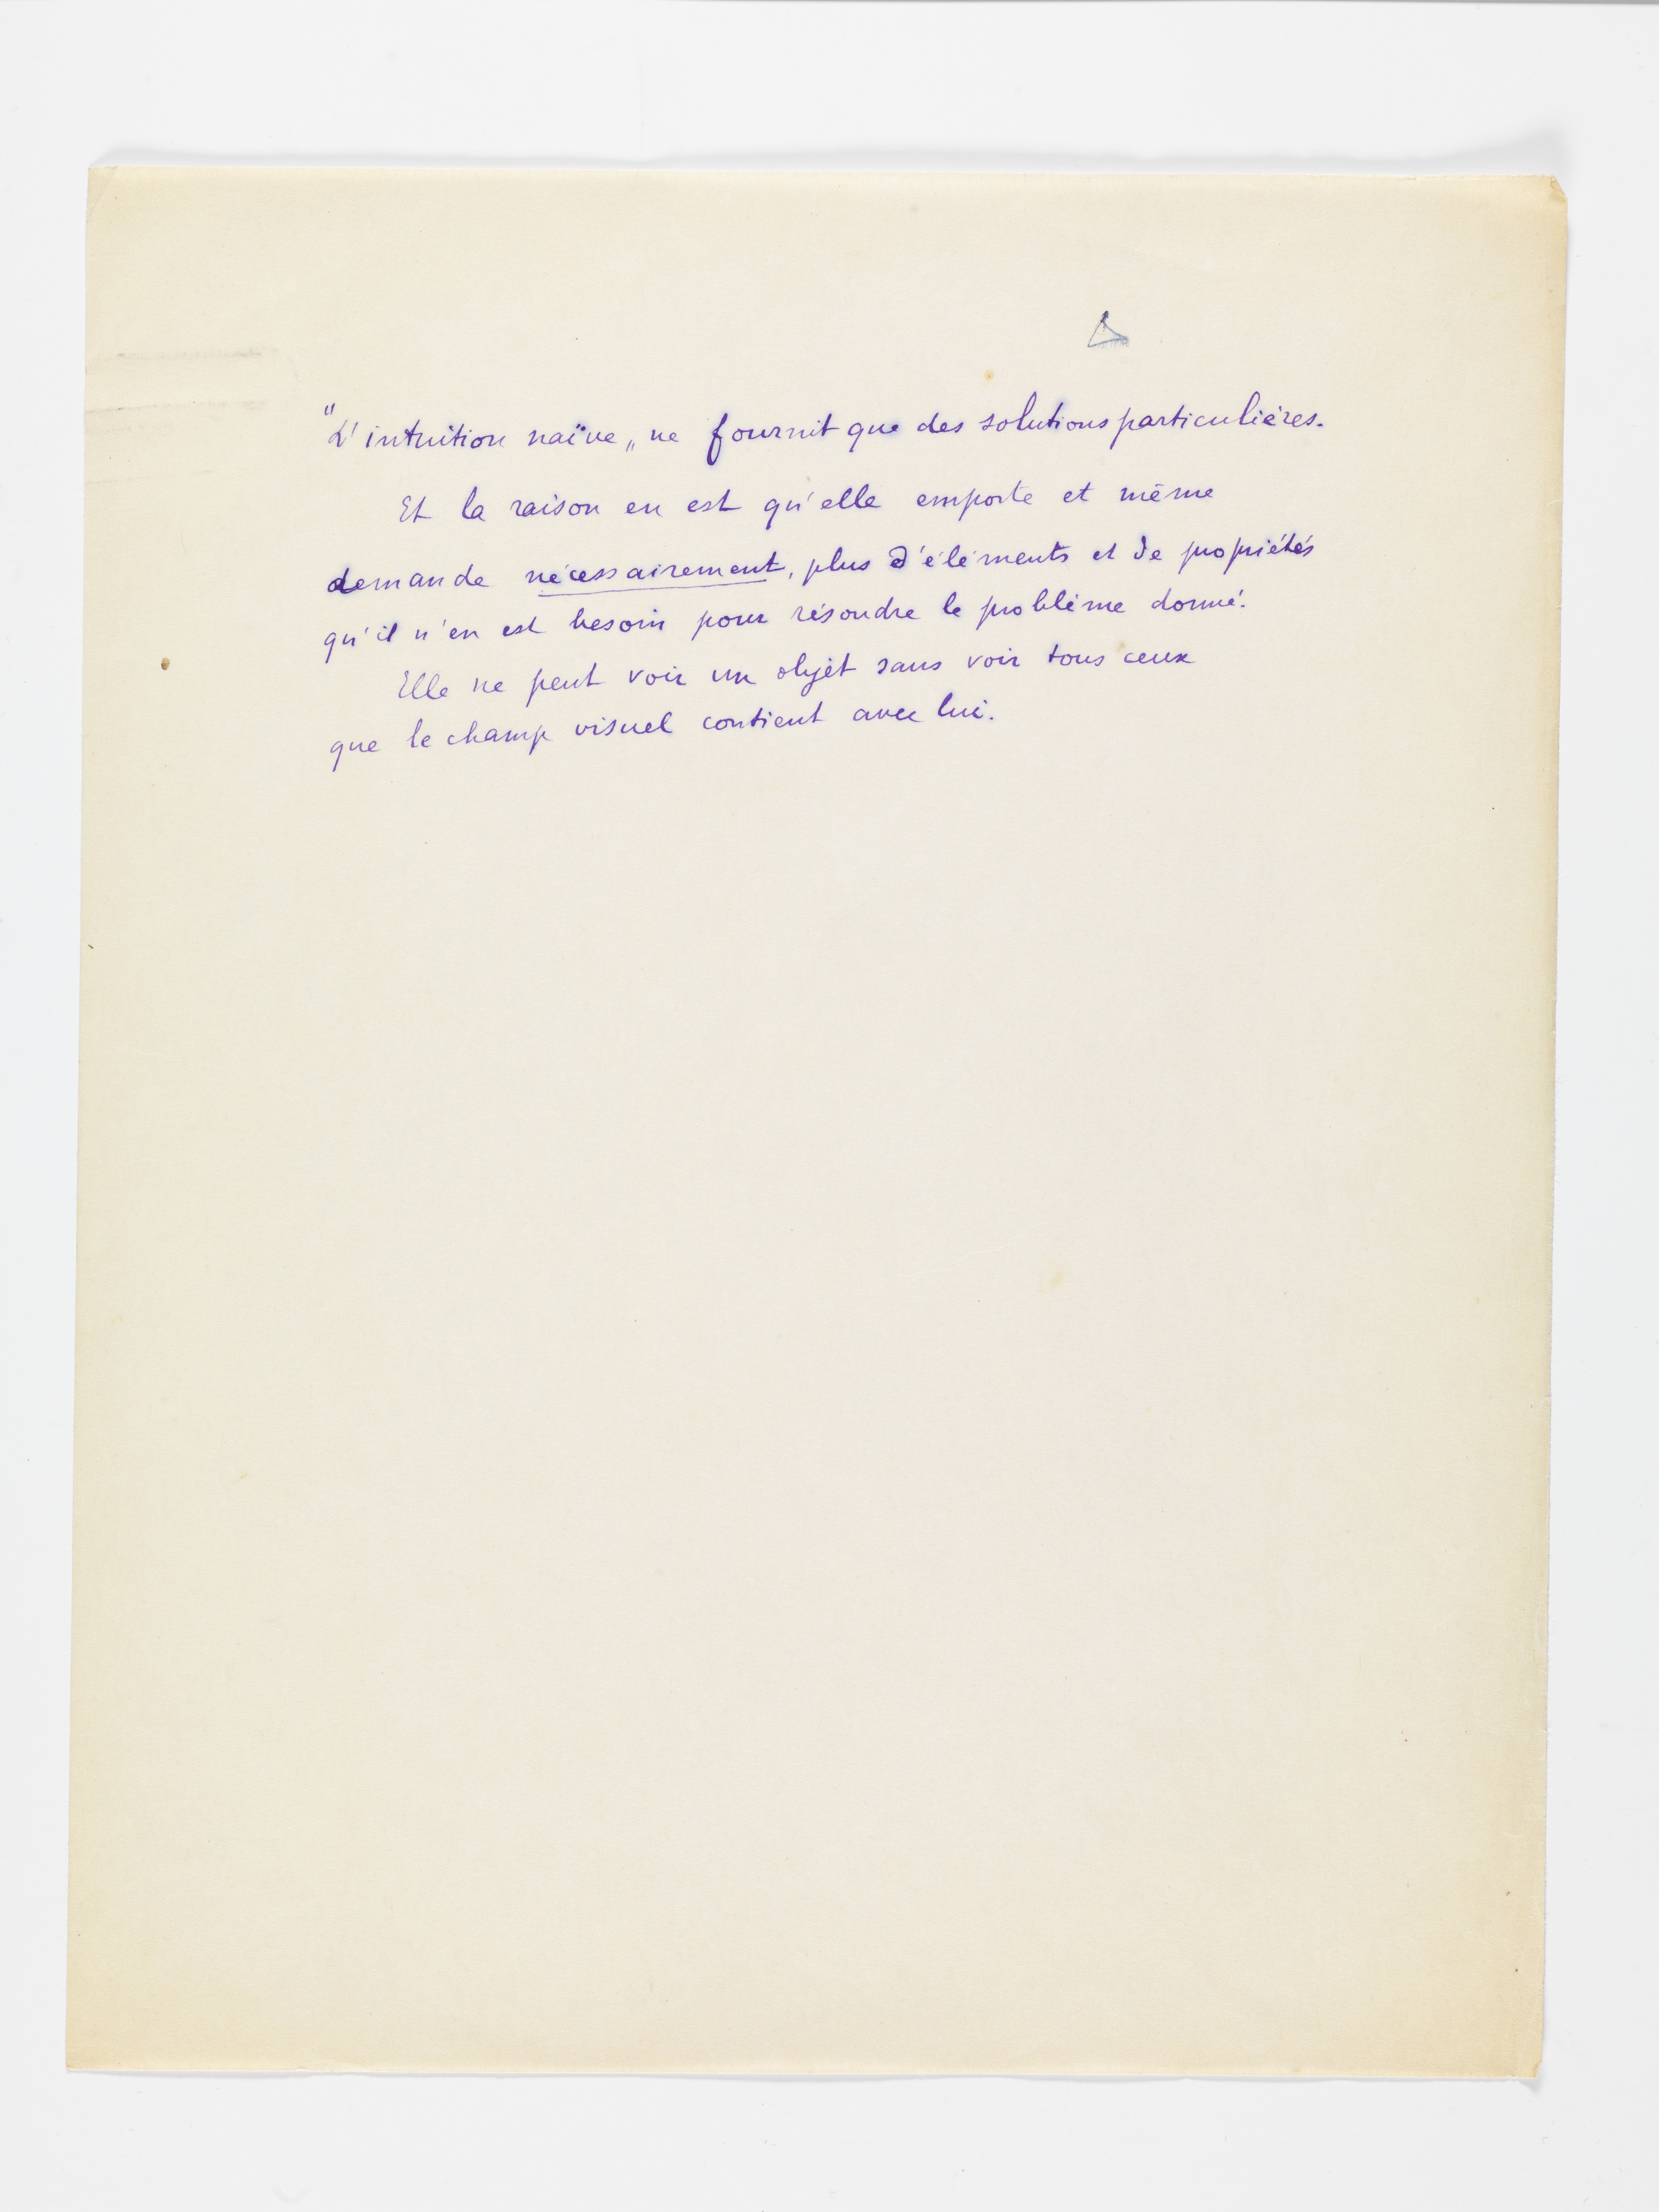 "L'intuition naïve„ ne fournit que des solutions particulières.
Et la raison en est qu'elle emporte et même
demande nécessairement, plus d'éléments et de propriétés
qu'il n'en est besoin pour résoudre le problème donné.
Elle ne peut voir un objet sans voir tous ceux
que le champ visuel contient avec lui.